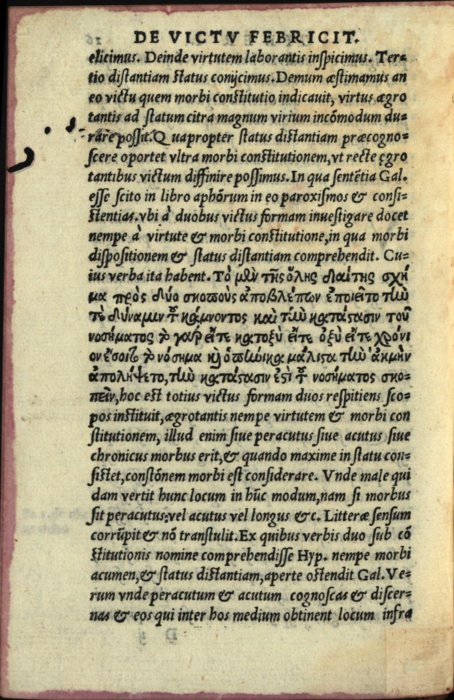 DE VICTV FEBRICIT.
elicimus. Deinde virtutem laborantis inspicimus. Ter=
tio distantiam status conijcimus. Demum æstimamus an
eo victu quem morbi constitutio indicauit, virtus ægro
tantis ad statum citra magnum virium incōmodum du=
rare possit. Quapropter status distantiam præcogno=
scere oportet vltra morbi constitutionem, vt recte ęgro
tantibus victum diffinire possimus. In qua sentētia Gal.
esse scito in libro aphōrum in eo paroxismos & consi=
stentias. vbi à duobus victus formam inuestigare docet
nempe à virtute & morbi constitutione, in qua morbi
dispositionem & status distantiam comprehendit. Cu=
ius verba ita habent. Τὸ μὲν τῆς ὅλης διαίτης σχῆ
μα πρὸς δύο σκοποὺς ἀποβλέπων ἐποιεῖτο τὴν
τε δύναμιν τοῦ κάμνοντος καὶ τὴν κατάστασιν τοῦ
νοσήματος τὸ γαρ εἴτε κατοξὺ εἴτε ὀξὺ εἴτε χρόνι
ον ἔσοιτο τὸ νόσημα
μάλιστα τὴν ἀκμὴν
ἀπολήψετο, τὴν κατάστασιν ἐστὶ τοῦ νοσήματος σκο=
πεῖν, hoc est totius victus formam duos respitiens sco=
pos instituit, ægrotantis nempe virtutem & morbi con
stitutionem, illud enim siue peracutus siue acutus siue
chronicus morbus erit, & quando maxime in statu con=
sistet, constōnem morbi est considerare. Vnde male qui
dam vertit hunc locum in hūc modum, nam si morbus
sit peracutus: vel acutus vel longus &c. Litteræ sensum
corrūpit & nō transtulit. Ex quibus verbis duo sub cō
stitutionis nomine comprehendisse Hyp. nempe morbi
acumen, & status distantiam, aperte ostendit Gal. Ve=
rum vnde peracutum & acutum cognoscas & discer=
nas & eos qui inter hos medium obtinent locum infra